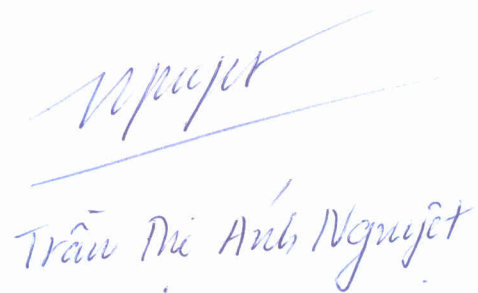 Nguyệt
Trần Thị Ánh Nguyệt